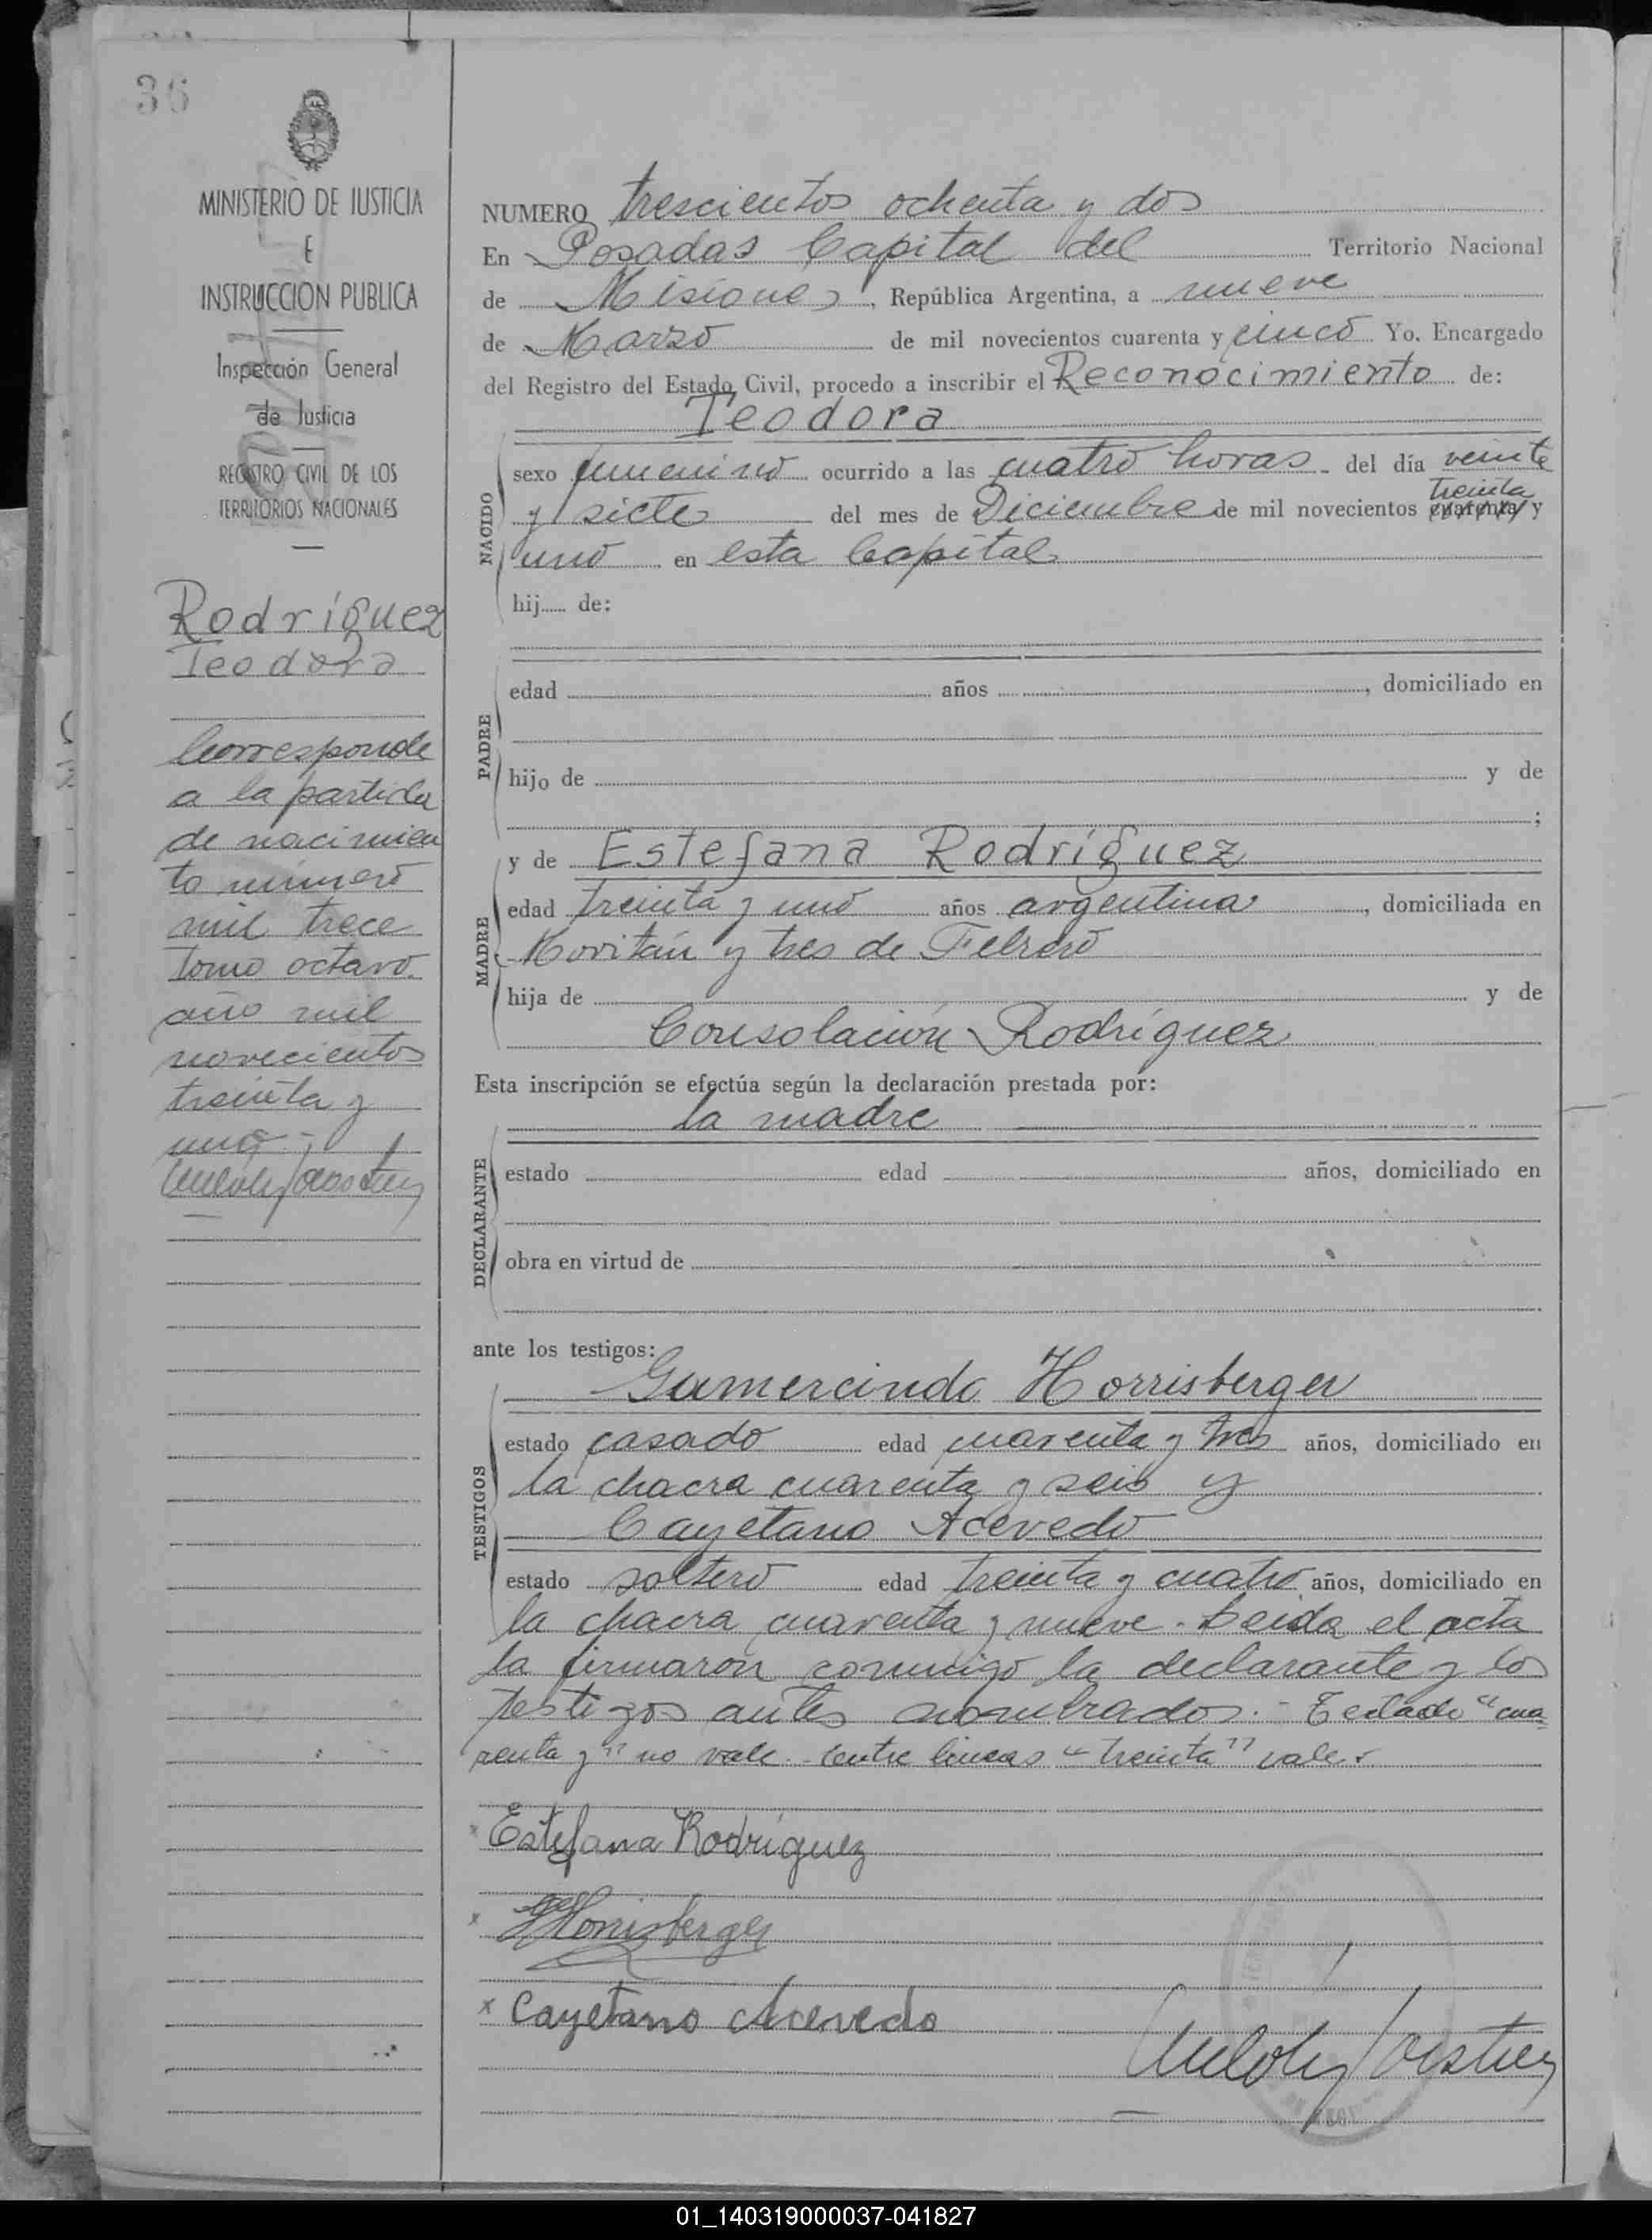 36
MINISTERIO DE JUSTICIA
E
INSTRUCCION PUBLICA
Inspección General
de Justicia
REGISTRO CIVIL DE LOS
TERRITORIOS NACIONALES
Rodríguez
Teodora
Corresponde
a la partida
de nacimien
to número
mil trece
tomo octavo
año mil
novecientos
treinta y
uno.-
NUMERO trescientos ochenta y dos
En Posadas Capital del Territorio Nacional
de Misiones, República Argentina, a nueve
de Marzo de mil novecientos cuarenta y cinco Yo, Encargado
del Registro del Estado Civil, procedo a inscribir el Reconocimiento de:
Teodora
NACIDO
sexo femenino ocurrido a las cuatro horas del día veinte
treinta
y siete del mes de Diciembre de mil novecientos cuarenta y
uno en esta Capital
hij...... de:
PADRE
edad años , domiciliado en
hijo de y de
;
MADRE
y de Estefana Rodríguez
edad treinta y uno años argentina, domiciliada en
y tres de Febrero
hija de y de
Consolación Rodríguez
Esta inscripción se efectúa según la declaración prestada por:
la madre
DECLARANTE
estado edad años, domiciliado en
obra en virtud de
ante los testigos:
TESTIGOS
Gumercindo Horrisberger
estado casado edad cuarenta y tres años, domiciliado en
la chacra cuarenta y seis y
Cayetano Acevedo
estado soltero edad treinta y cuatro años, domiciliado en
la chacra cuarenta y nueve. Leida el acta
la firmaron conmigo la declarante y los
testigos antes nombrados.- Testado "cua
renta y" no vale. Entre lineas "treinta" vale.
x Estefana Rodríguez
x Horrisberger
x Cayetano Acevedo
01_140319000037-041827